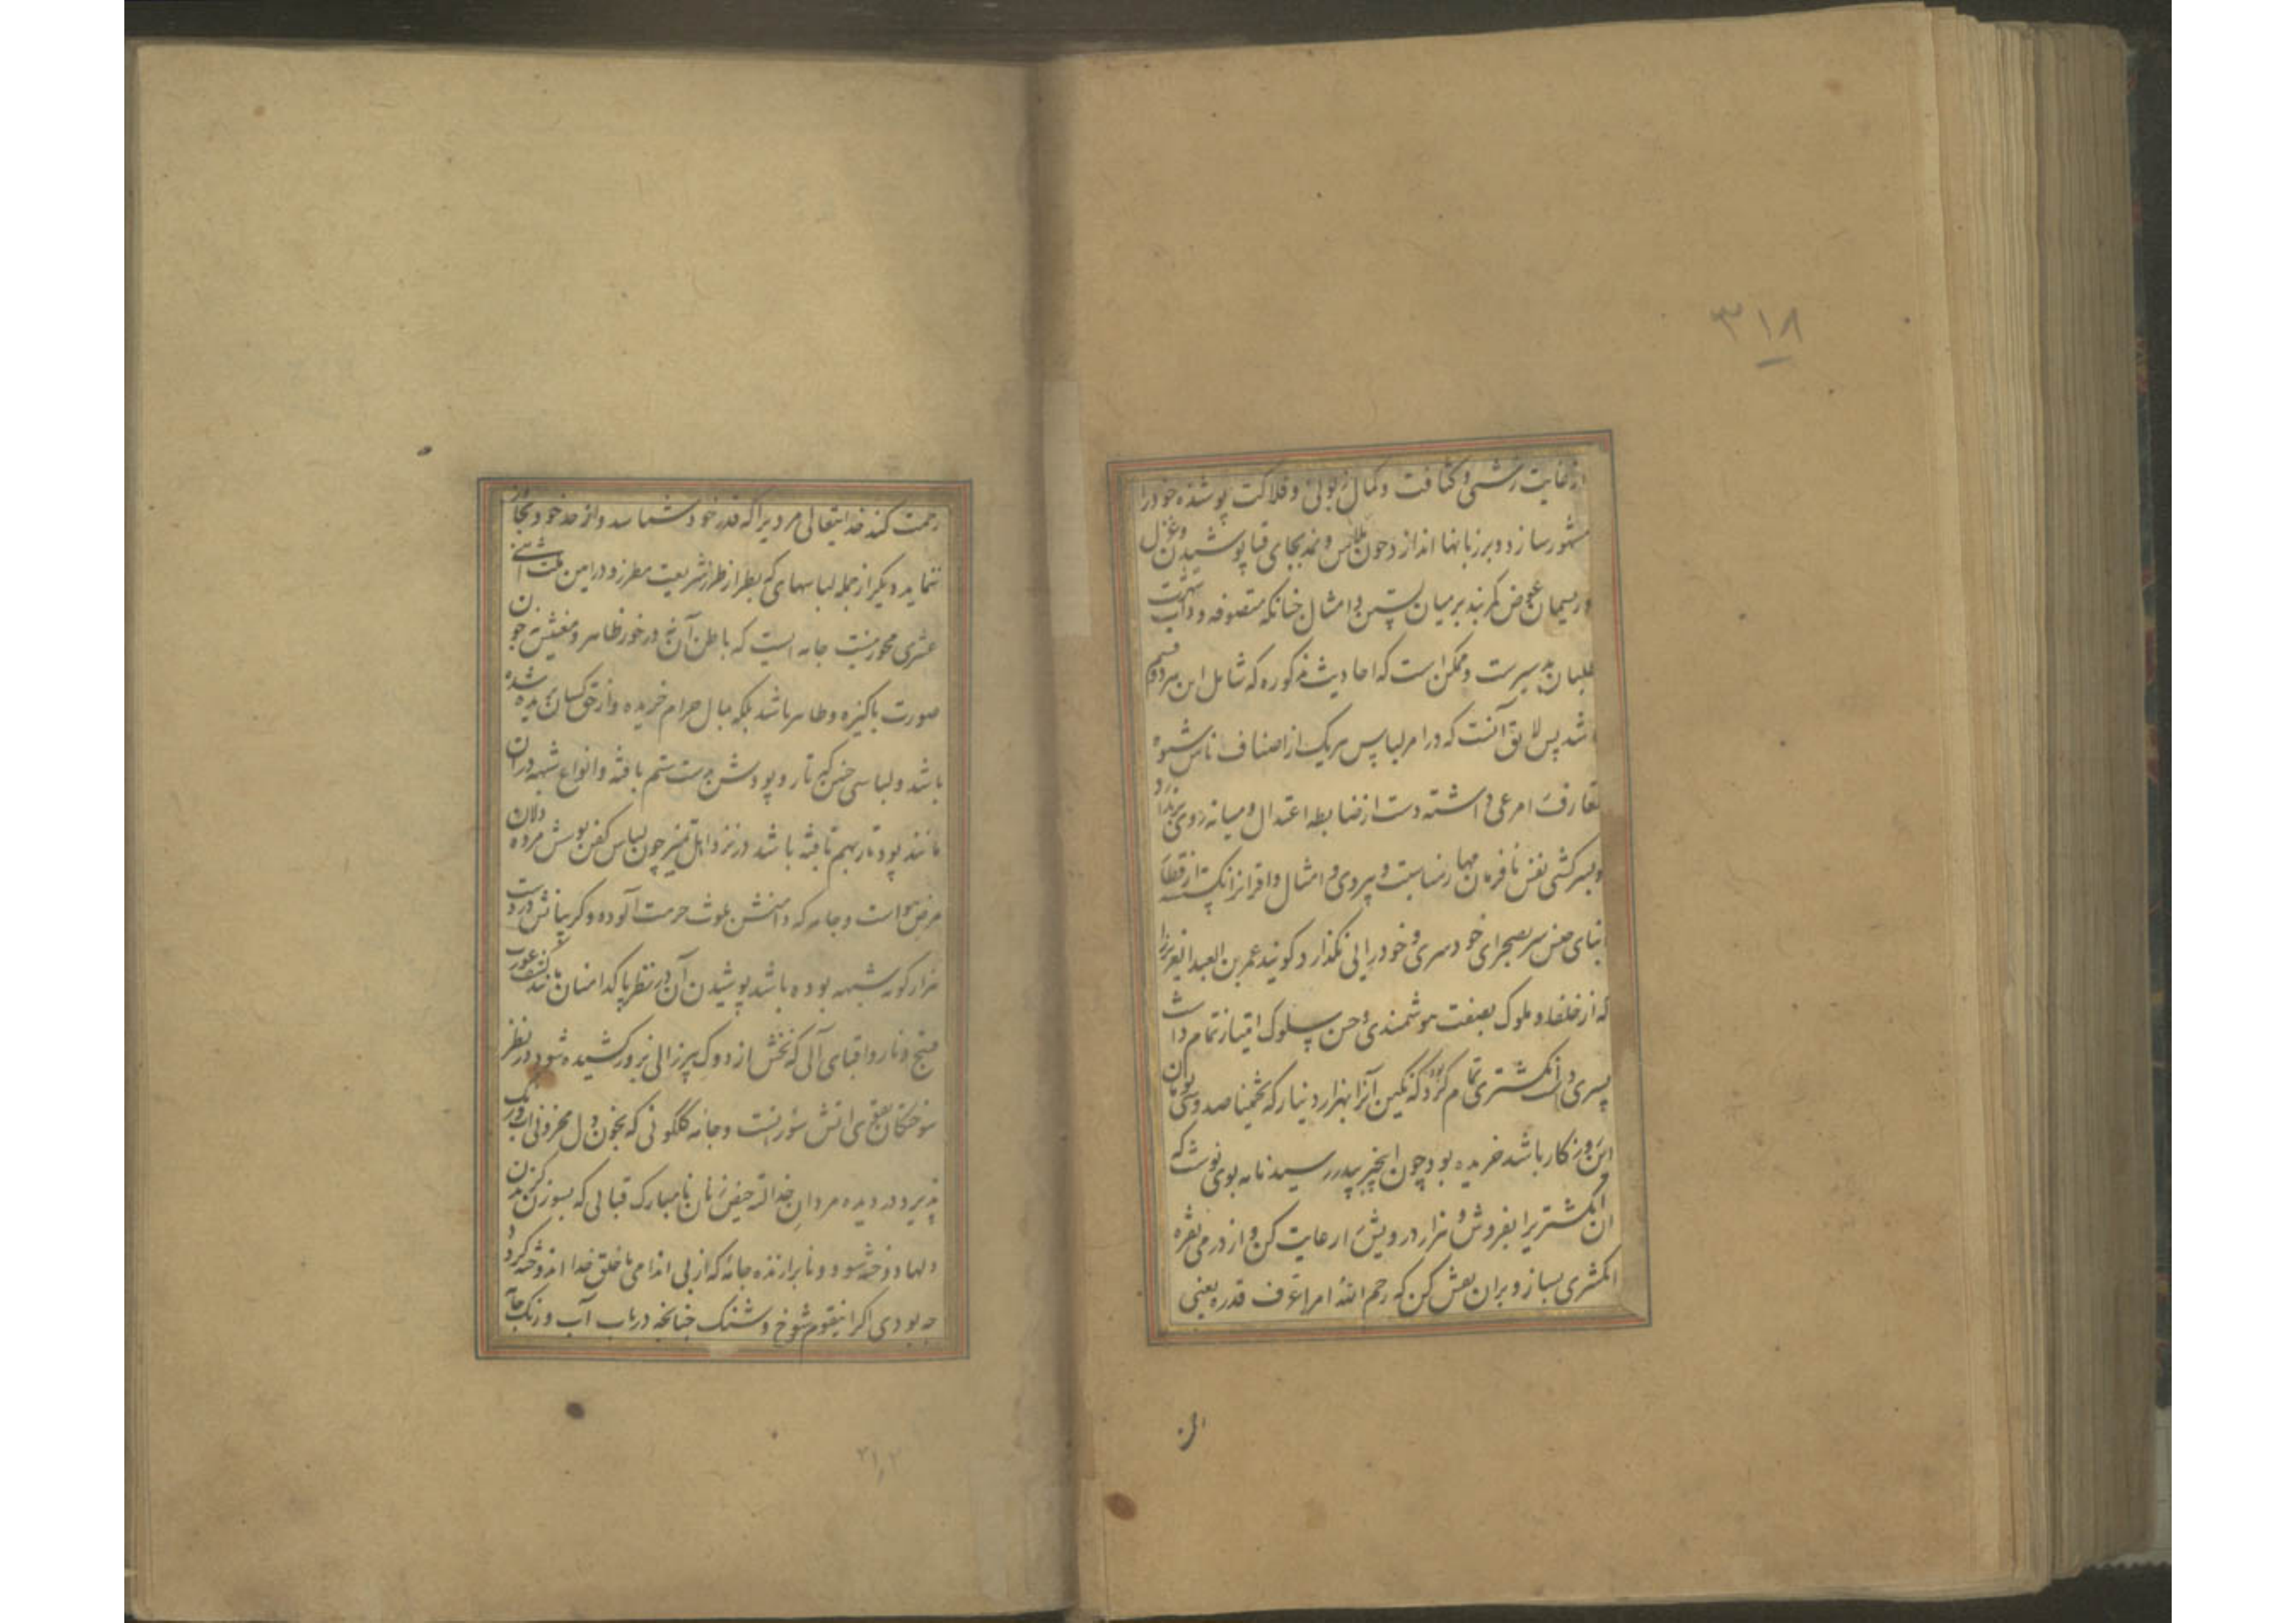 ۳۱۸
از غایت زشتی و کثافت و کمال زبونی و فلاکت پوشنده خود را
مشهور سازد و بر زبانها اندازد چون پلاس و نمد بجای قبا پوشیدن و غزل
و ریسمان عوض کمربند بر میان بستن و امثال چنانکه متصوفه و داب شهرت
طلبان بد سیرت و ممکن است که احادیث مذکوره که شامل این هر دو قسم
باشد پس لایق آنست که در امر لباس هر یک از اصناف ناس شیوه
تعارف را مرعی داشته دست از ضابطه اعتدال و میانه روی بر ندارد
و بسرکشی نفس نافرمان مهار مناسبت و پیروی امثال و اقران از قطار
ابنای جنس سر بصحرای خودسری و خودرایی نگذارد گویند عمر بن العبد العزیز را
که از خلفا و ملوک بصفت هوشمندی و حسن سلوک امتیاز تمام داشت
پسری انگشتری تمام کرده بود که نگین آنرا بهزار دینار که تخمینا صد و سی تومان
این روزگار باشد خریده بود چون اینخبر بپدر رسید نامه بوی نوشت که
آن انگشتریرا بفروش و هزار درویش را رعایت کن و از درمی نقره
انگشتری بساز و بران نقش کن که رحم الله امرا عرف قدره یعنی
رحمت کند خدایتعالی مردیرا که قدر خود شناسد و از حد خود تجاوز
ننماید دیگر از جمله لباسهای که بطراز شریعت مطرز و در این ملت اثنی
عشری مجوز نیست جامه ایست که باطن آن نیز در خور ظاهر و معنیش چون
صورت پاکیزه و طاهر باشد بلکه بمال حرام خریده و از حق کسان بریده شده
باشد و لباسی چنین که تار و پودش بدست ستم بافته و انواع شبهه در ان
مانند پود و تار بهم تافته باشد در نزد اهل تمیز چون لباس کفن پوشش مرده دلان
مرض هواست و جامه که دامنش بلوث حرمت آلوده و گریبانش در دست
هزار گونه شبهه بوده باشد پوشیدن آن در نظر پاکدامنان مانند کشف عورت
قبیح و نارواقبای آلی که نخش از دوک پیرزالی بزور کشیده شود در نظر
سوختگان تقوی آتش سوزانست و جامه گلگونی که بخون دل محزونی آب و رنگ
پذیرد در دیده مردان خدا لته حیض زنان نامبارک قبائی که بسوزن گزیدن
دلها دوخته شود و نابرازنده جامه که از بی اندامی با خلق خدا اندوخته گردد
چه بودی اگر اینقوم شوخ و شنگ چنانچه در باب آب و رنگ جامه